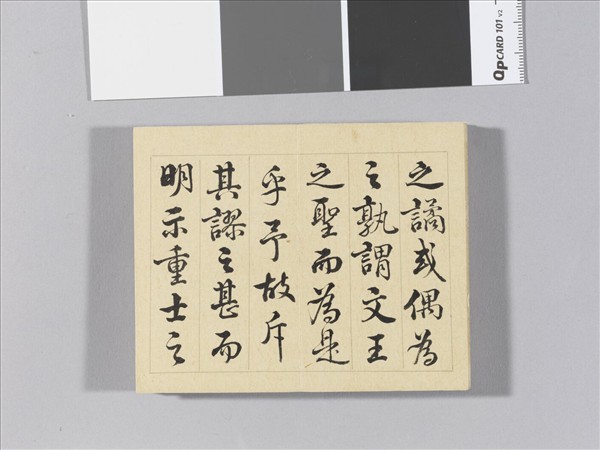 之譎或偶為
之孰謂文王
之聖而為是
乎予故斥
其謬之甚而
明示重士之
QpCARD 101 v2